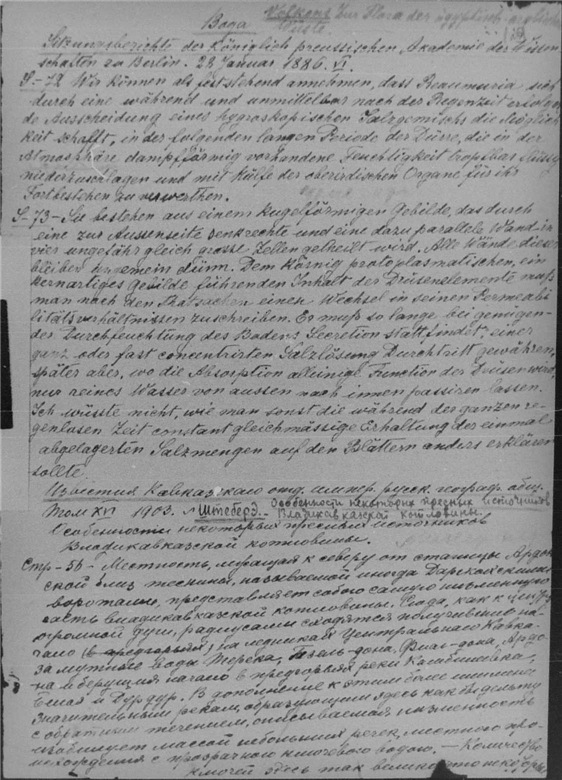 Вода Volkens Zur Flora der ägyptisch-arabischen Wüste
Sitzungsberichte der Königlich preussischen Akademie der Wissen
schaften zu Berlin. 28 Januar 1886. VI.
S.-72 Wir können als feststehend annehmen, dass Reaumuria sich
durch eine während und unmittelbar nach der Regenzeit erfolgen
de Ausscheidung eines hygroskopischen Salzgemischs die Möglich
keit schafft, in der folgenden langen Periode der Dürre, die in der
Atmosphäre dampfförmig vorhandene Feuchtigkeit tropfbar flüssig
niederzuschlagen und mit Hülfe der oberirdischen Organe für ihr
Fortbestehen zu verwerthen.
S-73- Sie bestehen aus einem kugelförmigen Gebilde, das durch
eine zur Aussenseite senkrechte und eine dazu parallele Wand in
vier ungefähr gleich grosse Zellen getheilt wird. Alle Wände dieser
bleiben ungemein dünn. Dem körnig protoplasmatischen, ein
kernartiges Gebilde führenden Inhalt der Drüsenelemente muß
man nach den Thatsachen einen Wechsel in seinen Permeabi
litätsverhältnissen zuschreiben. Er muß so lange bei genügen-
der Durchfeuchtung des Bodens Secretion stattfindet, einer
ganz oder fast concentrirten Salzlösung Durchtritt gewähren,
später aber, wo die Absorption alleinige Function der Drüsen wird,
nur reines Wasser von aussen nach innen passiren lassen.
Ich wüsste nicht, wie man sonst die während der ganzen re-
genlosen Zeit constant gleichmässige Erhaltung der einmal
abgelagerten Salzmengen auf den Blättern anders erklären
sollte.
Известия Кавказскаго отд. импер. русск. географ. общ.
Том XVI 1903. Штеберъ. Особенности некоторых пресных источников
Владикавказской котловины.
Особенности некоторых пресных источников
Владикавказской котловины.
Стр-56- Местность, лежащая к северу от станицы Ардон
ской близ теснины, называемой иногда
воротами, представляет собою самую низменную
часть владикавказской котловины. Сюда, как к центру
огромной дуги, радиусами сходятся получившие на-
чало в ледниках Центральнаго Кавка-
за мутные воды Терека, Гизель-дона, Фиаг-дона, Ардо-
на и берущия начало в предгорьях реки
и Дурдур. В дополнение к этим более
значительным рекам, образующим здесь как бы дельту
с обратным течением, описываемая низменность
изобилует массой небольших речек, местного про-
исхождения с прозрачною ключевою водою. — Количество
ключей здесь так велико, что